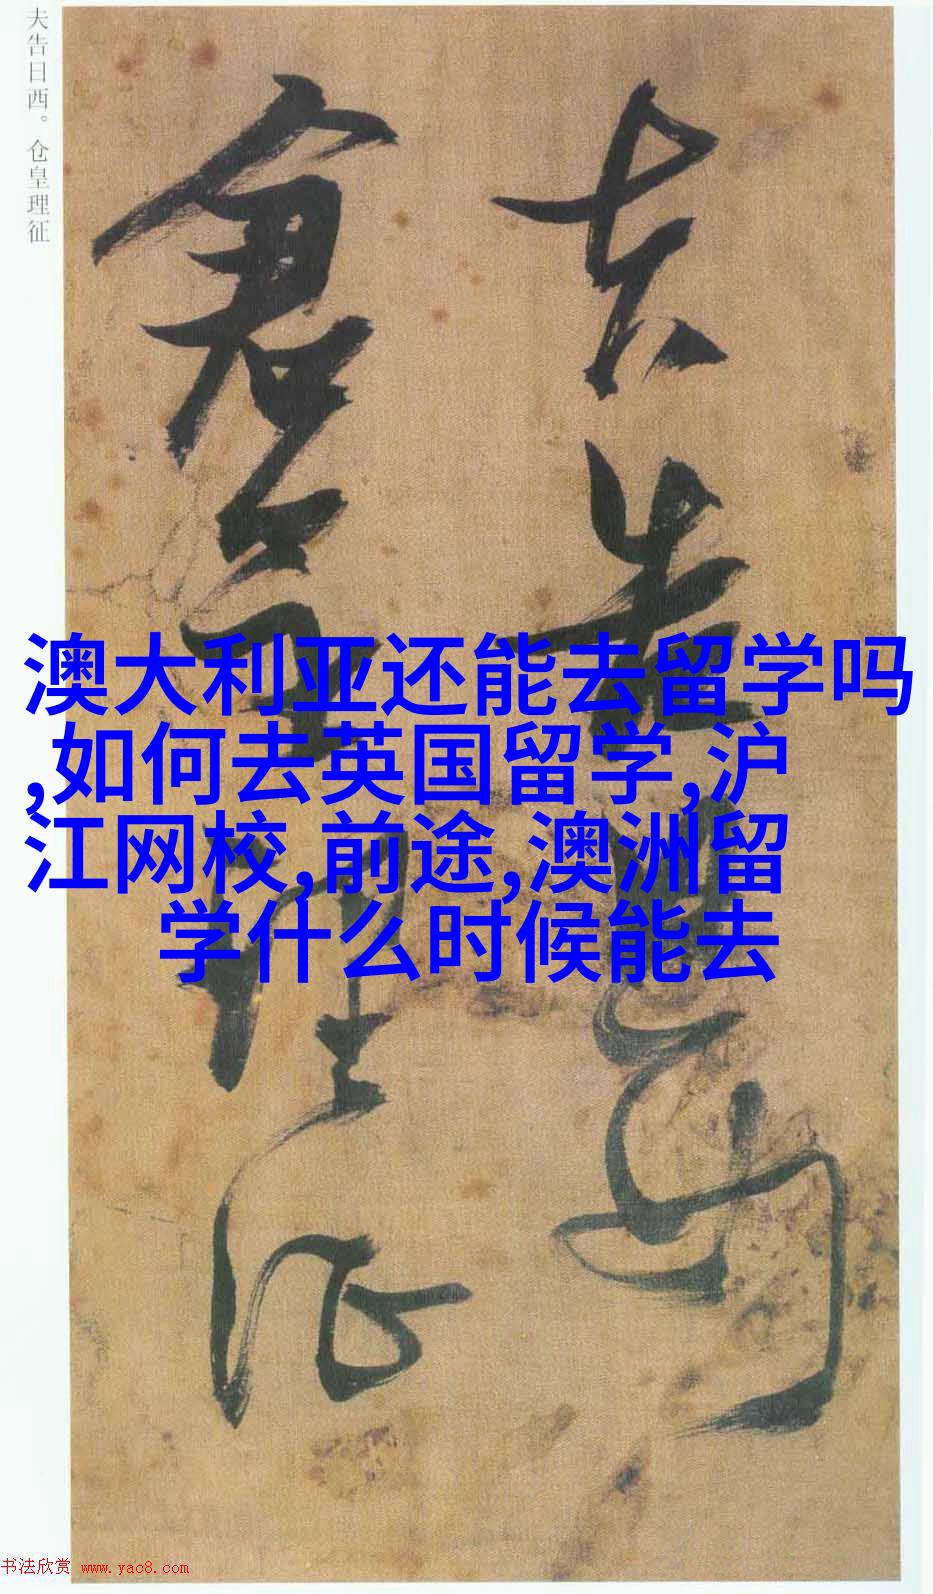 夫告日西。仓皇理征
夫告日西
仓皇理征
澳大利亚还能去留学吗
,如何去英国留学,沪
江网校,前途,澳洲留
学什么时候能去
书法欣赏 www.yac8.com